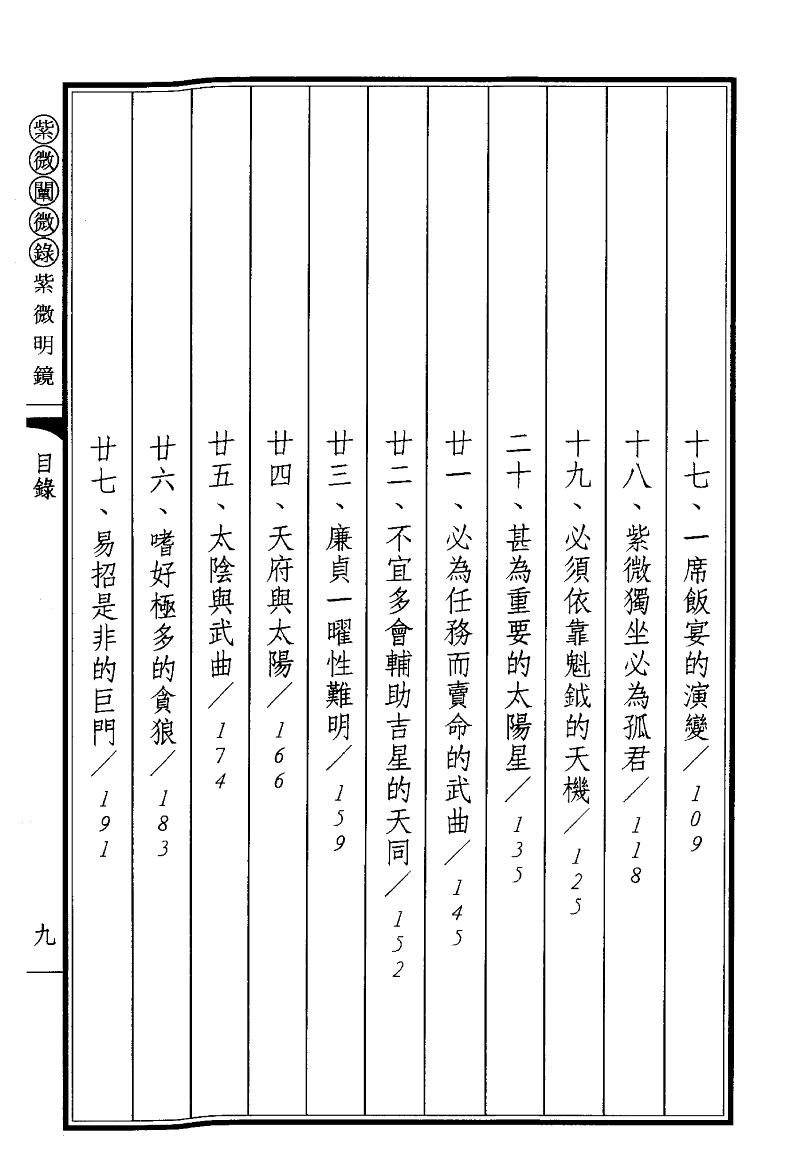 十七、一席飯宴的演變／109
十八、紫微獨坐必為孤君／118
十九、必須依靠魁鉞的天機／125
二十、甚為重要的太陽星／135
廿一、必為任務而賣命的武曲／145
廿二、不宜多會輔助吉星的天同／152
廿三、廉貞一曜性難明／159
廿四、天府與太陽／166
廿五、太陰與武曲／174
廿六、嗜好極多的貪狼／183
廿七、易招是非的巨門／191
紫微闡微錄紫微明鏡
目錄
九